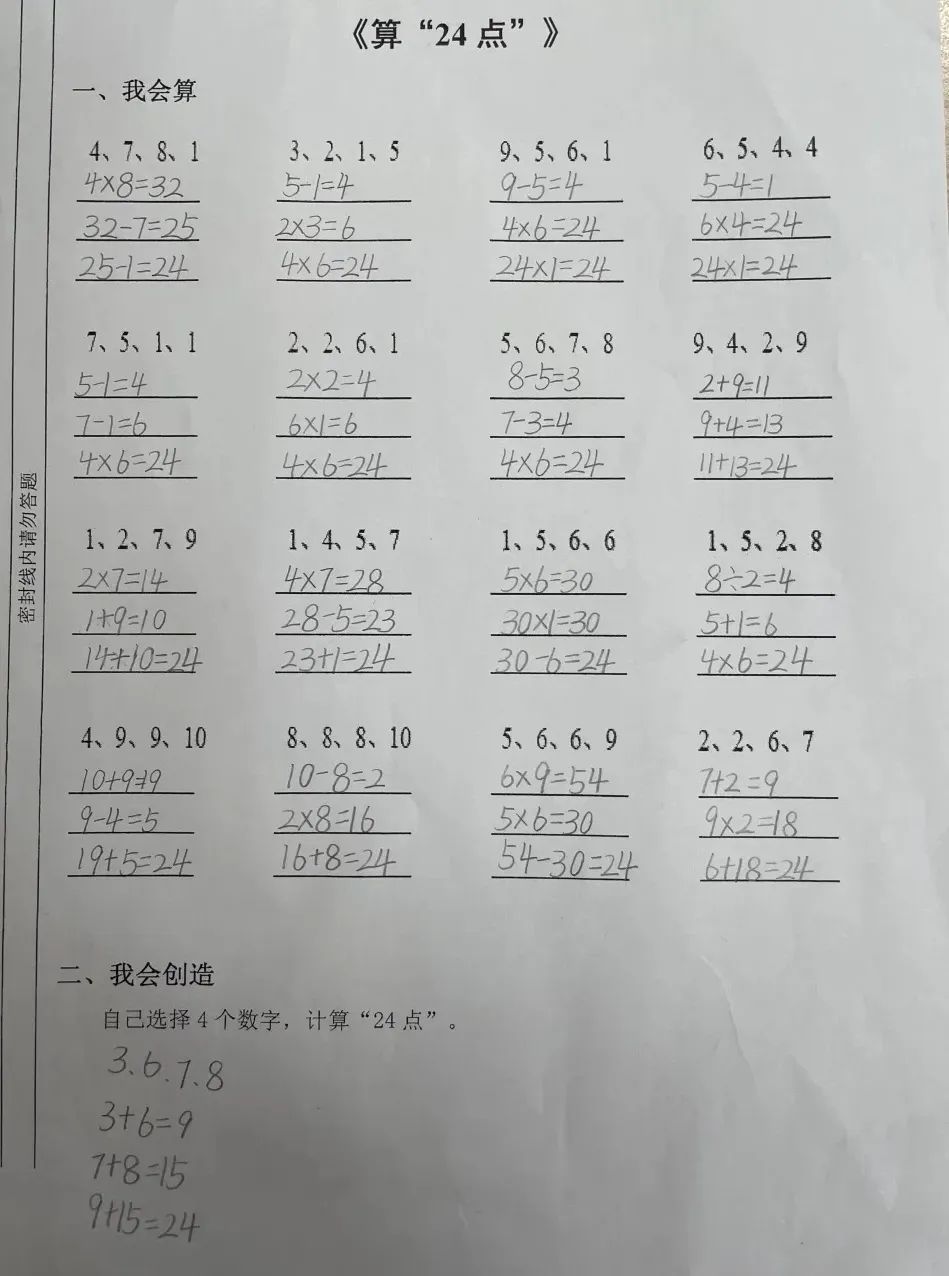 《算“24点”》
一、我会算
4、7、8、1 3、2、1、5 9、5、6、1 6、5、4、4
4×8=32 5-1=4 9-5=4 5-4=1
32-7=25 2×3=6 4×6=24 6×4=24
25-1=24 4×6=24 24×1=24 24×1=24
7、5、1、1 2、2、6、1 5、6、7、8 9、4、2、9
5-1=4 2×2=4 8-5=3 2+9=11
7-1=6 6×1=6 7-3=4 9+4=13
4×6=24 4×6=24 4×6=24 11+13=24
1、2、7、9 1、4、5、7 1、5、6、6 1、5、2、8
2×7=14 4×7=28 5×6=30 8÷2=4
1+9=10 28-5=23 30×1=30 5+1=6
14+10=24 23+1=24 30-6=24 4×6=24
4、9、9、10 8、8、8、10 5、6、6、9 2、2、6、7
10+9=19 10-8=2 6×9=54 7+2=9
9-4=5 2×8=16 5×6=30 9×2=18
19+5=24 16+8=24 54-30=24 6+18=24
二、我会创造
自己选择4个数字，计算“24点”。
3、6、7、8
3+6=9
7+8=15
9+15=24
密封线内请勿答题